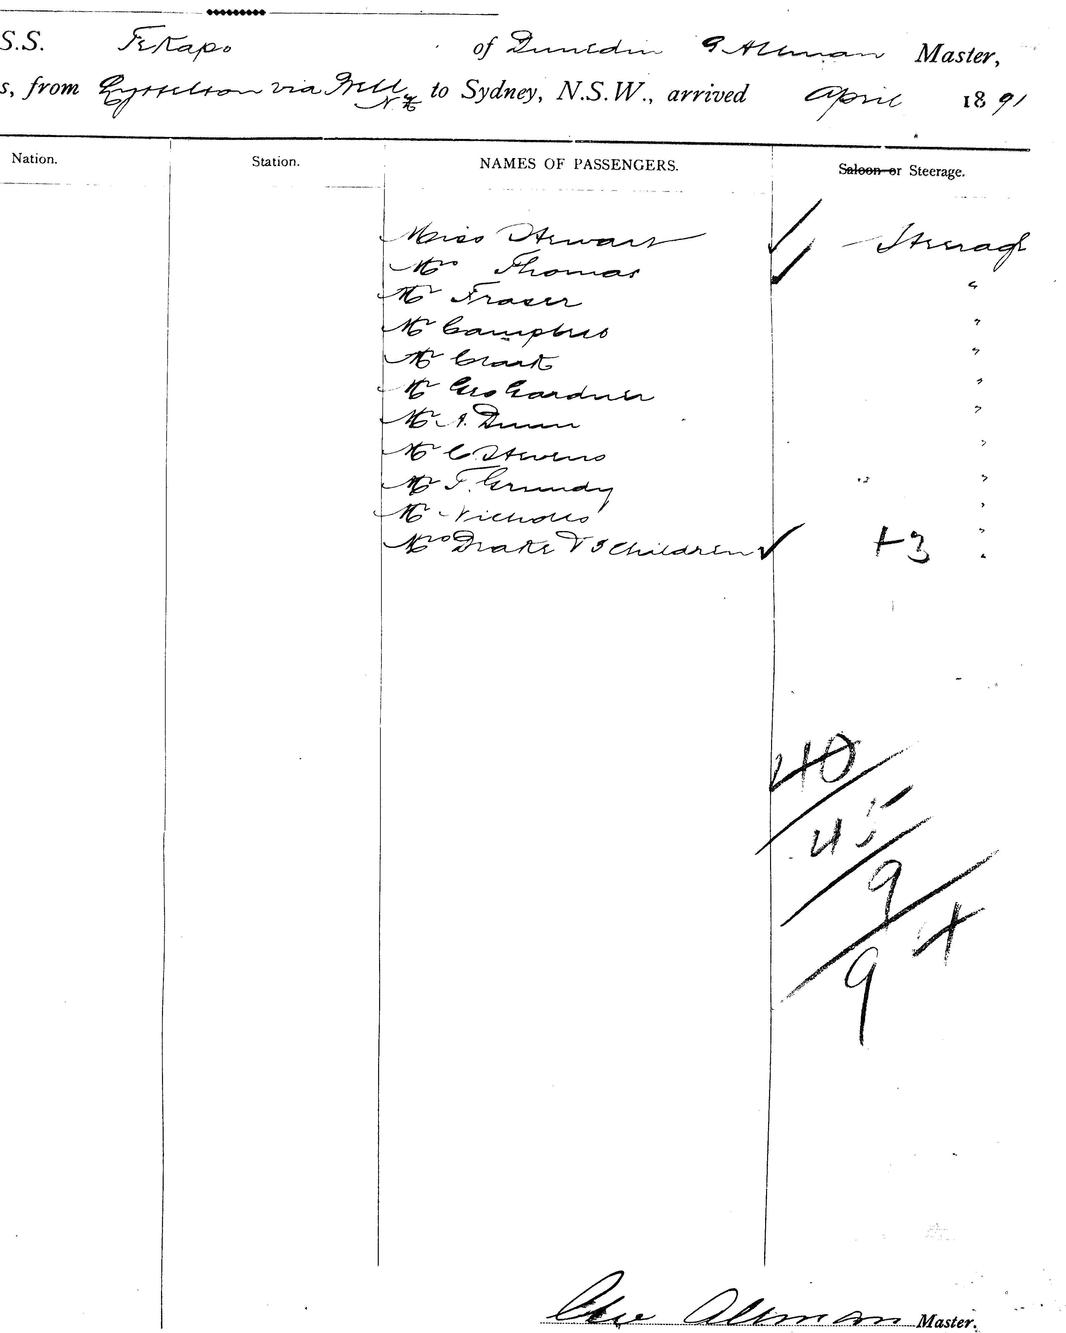 S.S. Tekapo of Dunedin G Allman Master,
s, from Lyttelton via Well N.Z. to Sydney, N.S.W., arrived April 1891
Nation. Station. NAMES OF PASSENGERS. Saloon or Steerage.
Miss Stewart Steerage
Mrs Thomas "
Mr Fraser "
Mr Campbell "
Mr Clark "
Mr Geo Gardner "
Mr A. Dunn "
Mr C Stevens "
Mr F. Grundy "
Mr Nicholls "
Mrs Drake & 3 Children + 3 "
40
45
9
9 +
Geo Allman Master.